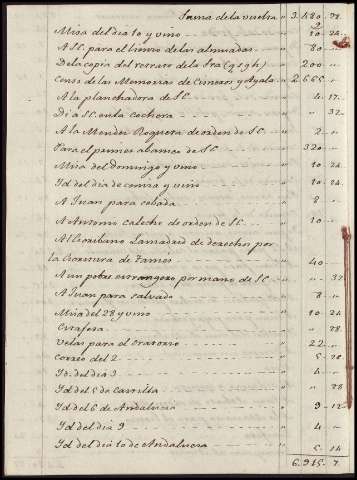 Suma de la vuelta " 3.480 .. 32.
Misa del dia 10 y vino " 10 .. 24
A SC. para el lienzo de las almuadas " 80 ..
De la copia del retrato de la Sra (q s g h) " 200 ..
Censo de las Memorias de Cisneros y Ayala " 2.666 ..
A la planchadora de SC. " 4 .. 17.
Di a SC. en la cochera " " .. 32.
A la Mendez Roqueta de orden de SC. " 2 ..
Para el primer abanico de SC " 320 ..
Misa del domingo y vino " 10 .. 24
Yd. del dia de comia y vino " 10 .. 24.
A Juan para cebada " 8 ..
A Antonio Calecho de orden de SC " 10 ..
Al Escribano Lamadrid de derechos por
la Escritura de Tames " 40 ..
A un pobre estrangero por mano de SC " " .. 32
A Juan para salvado " 8 ..
Misa del 28 y vino " 10 .. 24
Estafeta " " .. 28
Velas para el oratorio " 22 ..
Correo del 2 " 5 .. 20
Yd. del dia 3 " 4 ..
Yd del 5 de Castilla " " .. 28
Yd. del 6 de Andalucia " 9 .. 12
Yd. del dia 9 " 4 ..
Yd del dia 10 de Andalucia " 5 .. 14
6.915 .. 7.